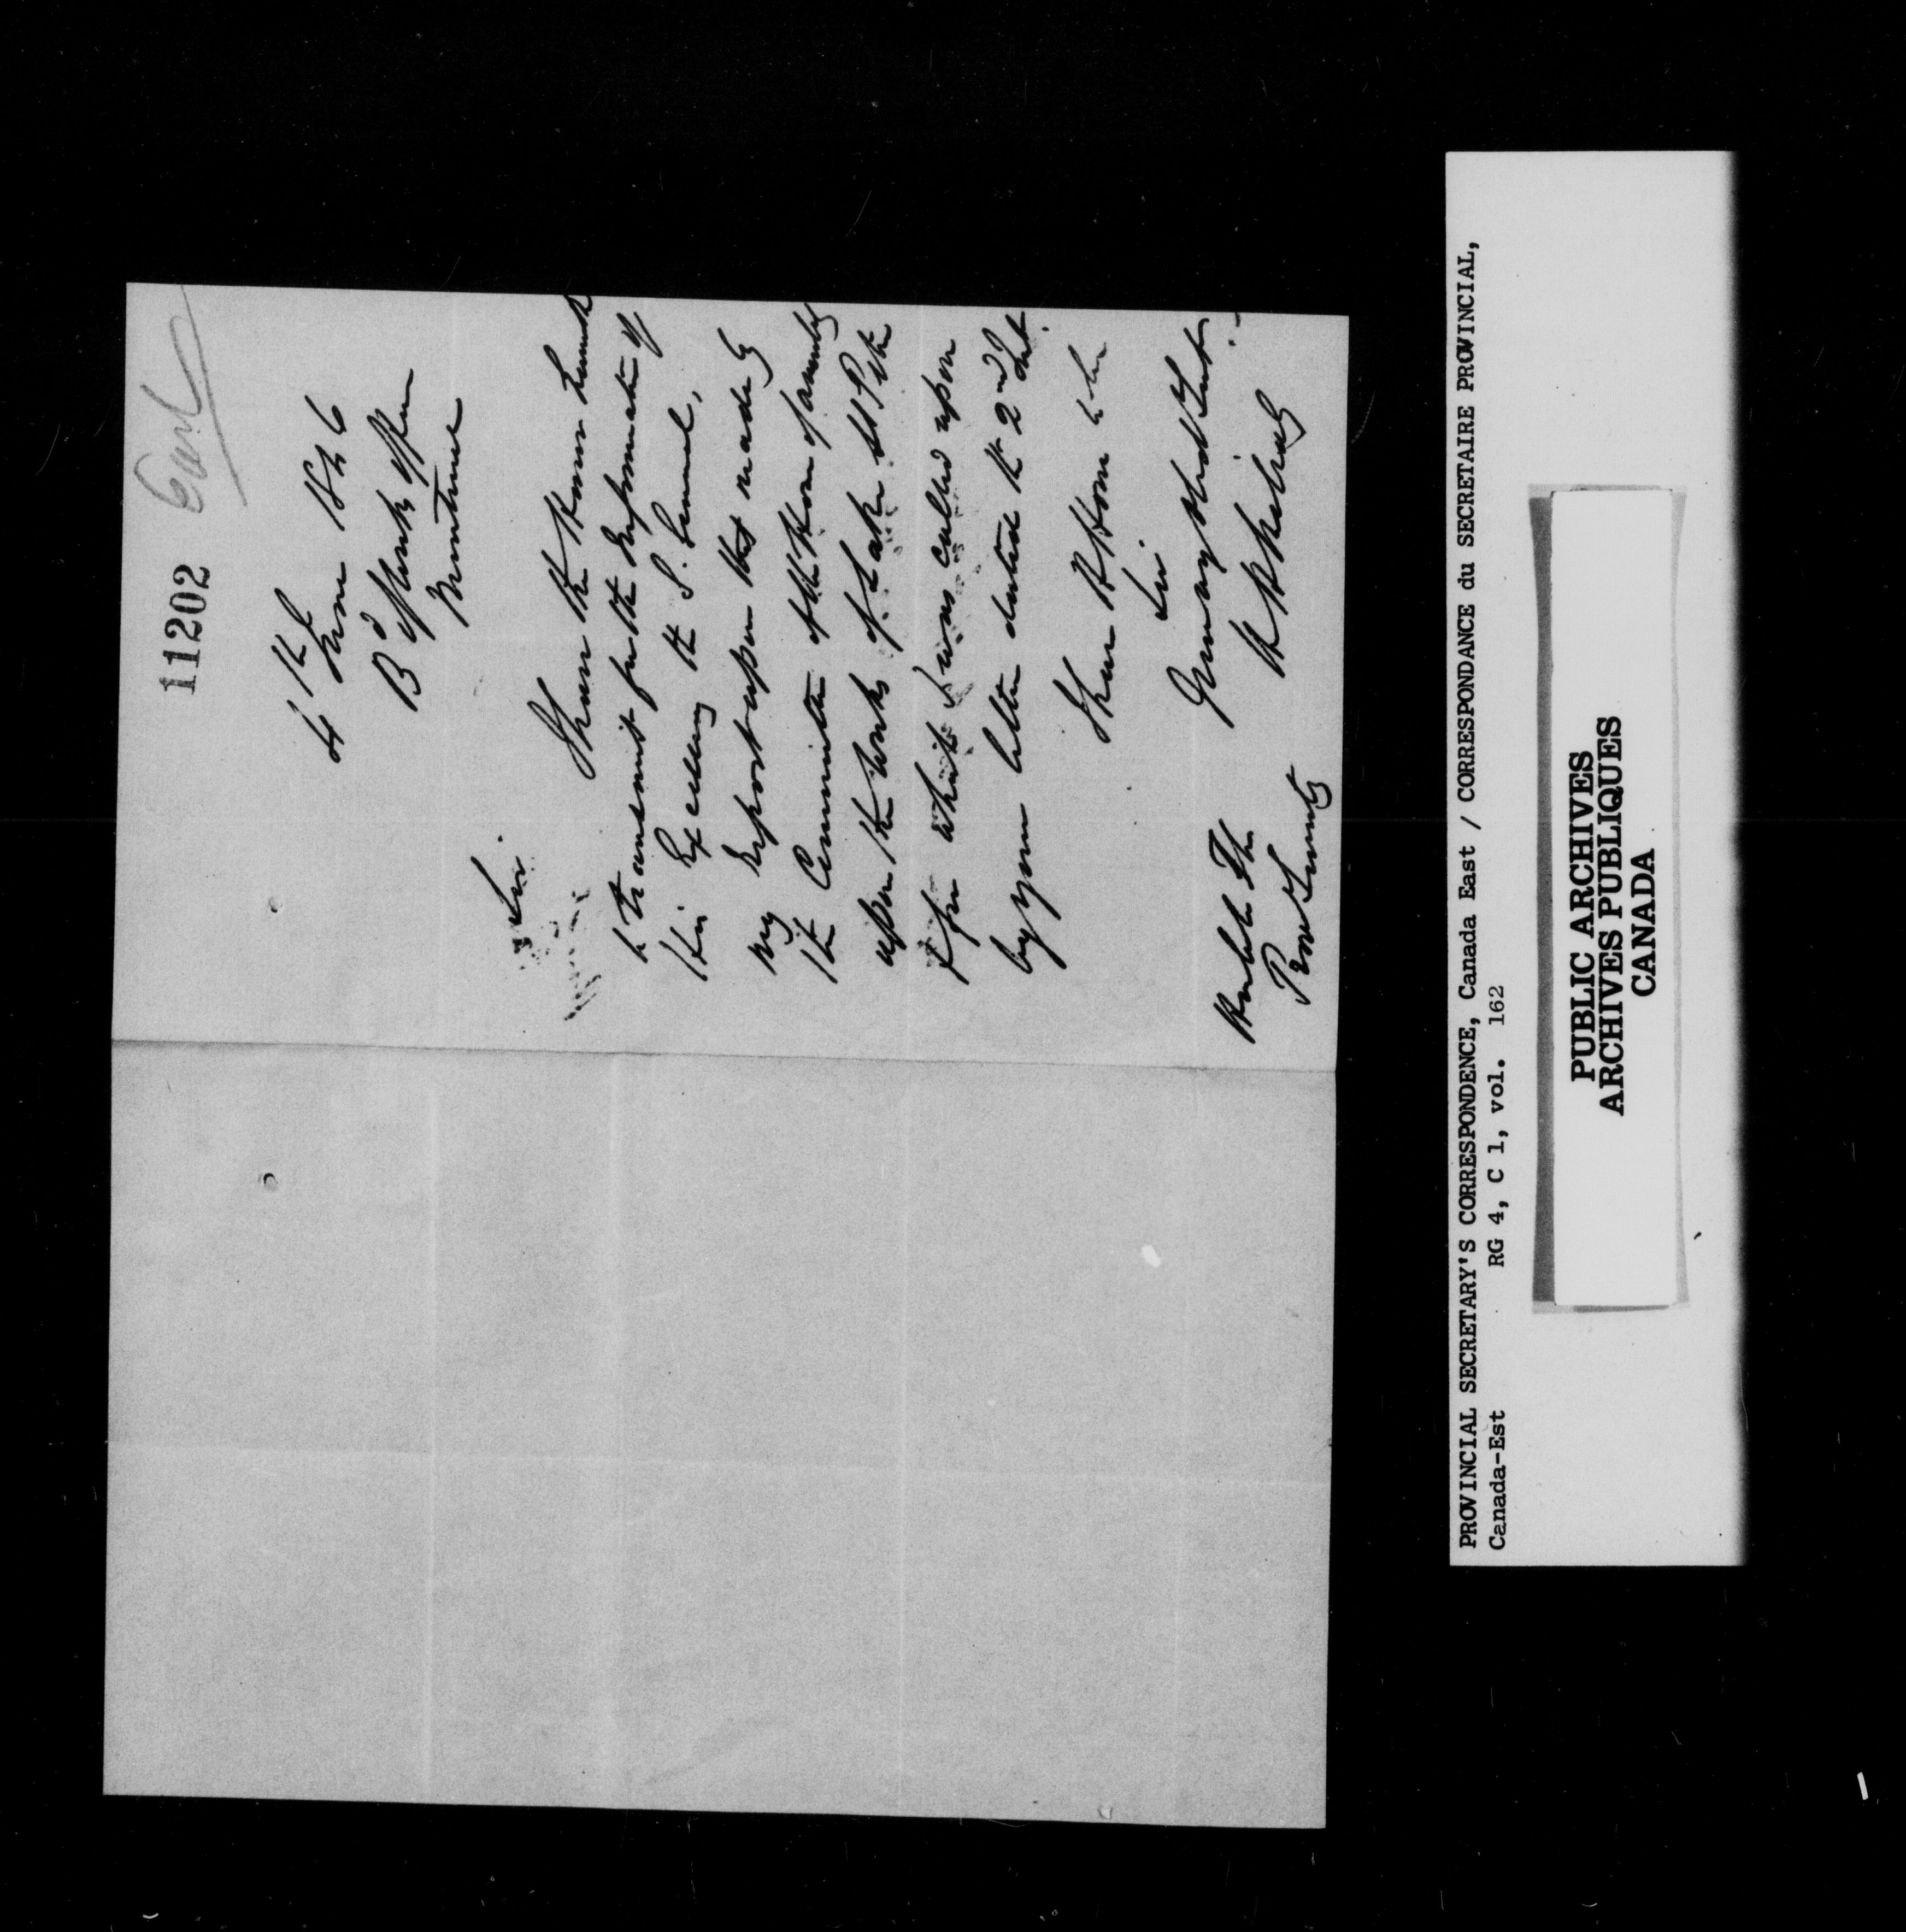 11202 East
4th June 1846
Bd of Works Office
Montreal
Sir.
I have the Honor herewith
to transmit for the Information of
His Excellency the G. General,
my Report upon that made by
the Committee of the House of Assembly
upon the Works of Lake St Peter
upon which I was called upon
by your letter dated the 2nd Inst.
I have the Honor to be
Sir
Your very obdt Servt
Honble The
Prov Secretary
PROVINCIAL SECRETARY'S CORRESPONDENCE, Canada East / CORRESPONDANCE du SECRETAIRE PROVINCIAL,
Canada-Est RG 4, C 1, vol. 162
PUBLIC ARCHIVES
ARCHIVES PUBLIQUES
CANADA